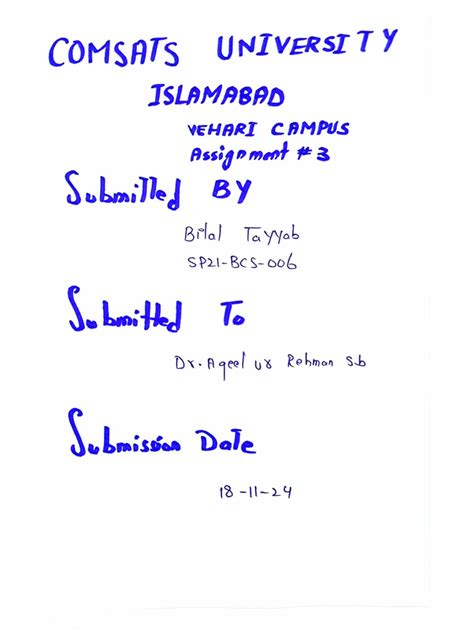 COMSATS UNIVERSITY
ISLAMABAD
VEHARI CAMPUS
Assignment # 3
Submitted BY
Bilal Tayyab
SP21-BCS-006
Submitted To
Dr. Aqeel ur Rehman Sb
Submission Date
18-11-24